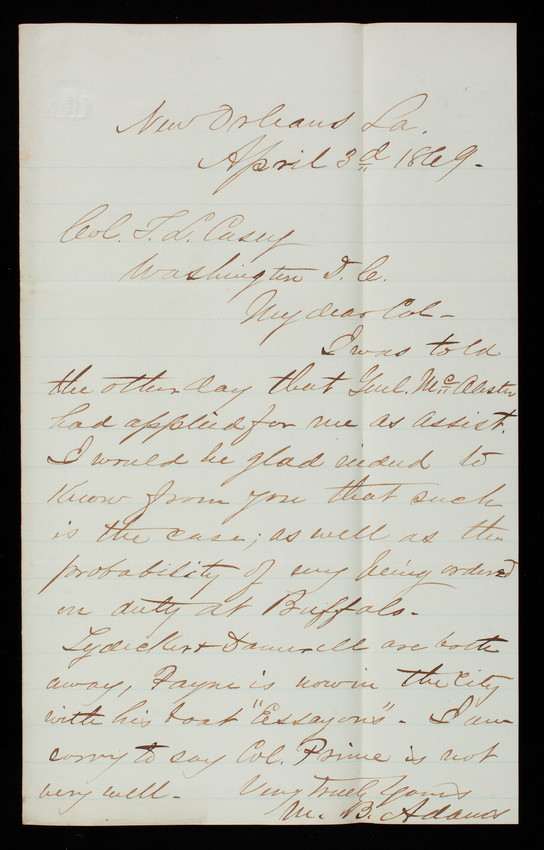 New Orleans La.
April 3d 1869.
Col. T. L. Casey
Washington D. C.
My dear Col-
I was told
the other day that Genl. McAlester
had applied for me as assist.
I would be glad indeed to
know from you that such
is the case; as well as the
probability of my being ordered
on duty at Buffalo.
Lydecker & Damrell are both
away, Payne is now in the City
with his boat "Essayons". I am
sorry to say Col. Prime is not
very well. Very Truly Yours
M. B. Adams